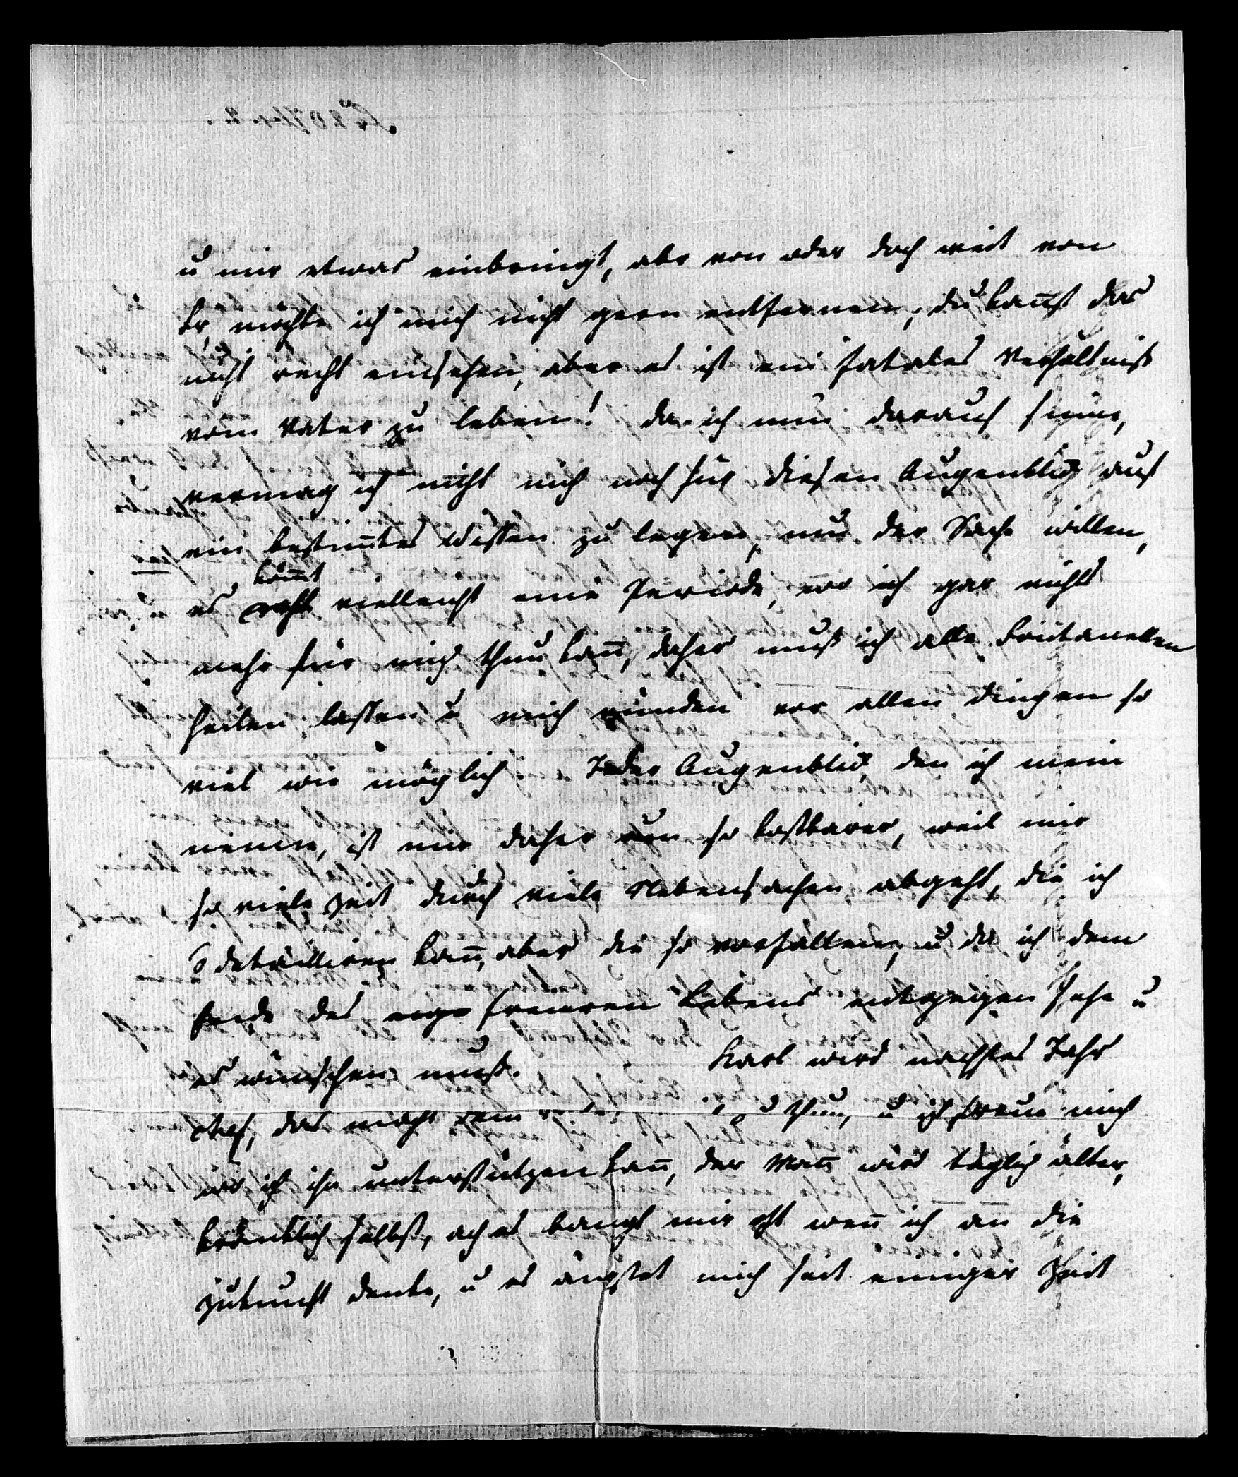 u mir etwas einbringt, aber von oder doch weit von
hier möchte ich mich nicht gern entfernen, du kannst das
nicht recht einsehen, aber es ist ein fatales Verhältniß
vom Vater zu leben! da ich nun darauf sinne,
vermag ich nicht mich noch für diesen Augenblick auf
ein bestimtes Wissen zu legen, nur der Sache willen,
es komt vielleicht eine Periode, wo ich gar nichts
mehr für mich thun kañ, daher muß ich alle Fontanellen
heilen lassen u mich ründen vor allen Dingen so
viel wie möglich. Jeder Augenblick, den ich mein
nenne, ist mir daher um so kostbarer, weil mir
so viele Zeit durch viele Nebensachen abgeht, die ich
detailliren kañ, aber die so vorfallen, u da ich dem
Ende des Lebens entgegen sehe u
es wünschen muß. Karl wird nächstes Jahr
das macht dem zu thun, u ich freue mich
wo ich ihn unterstützen kañ, der Mañ wird täglich älter,
selbst, ach es bangt mir oft weñ ich an die
Zukunft denke, u es ängstet mich seit einiger Zeit